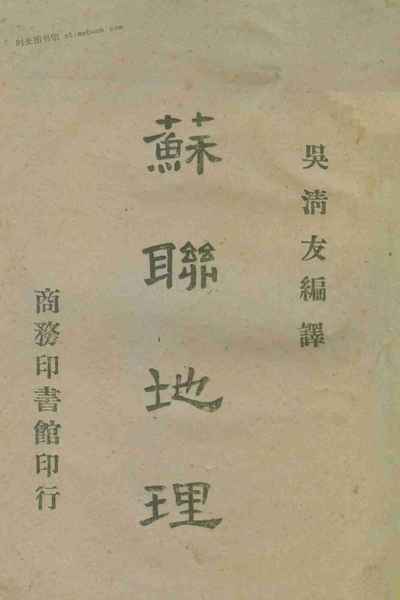 吳清友編譯
蘇聯地理
商務印書館印行